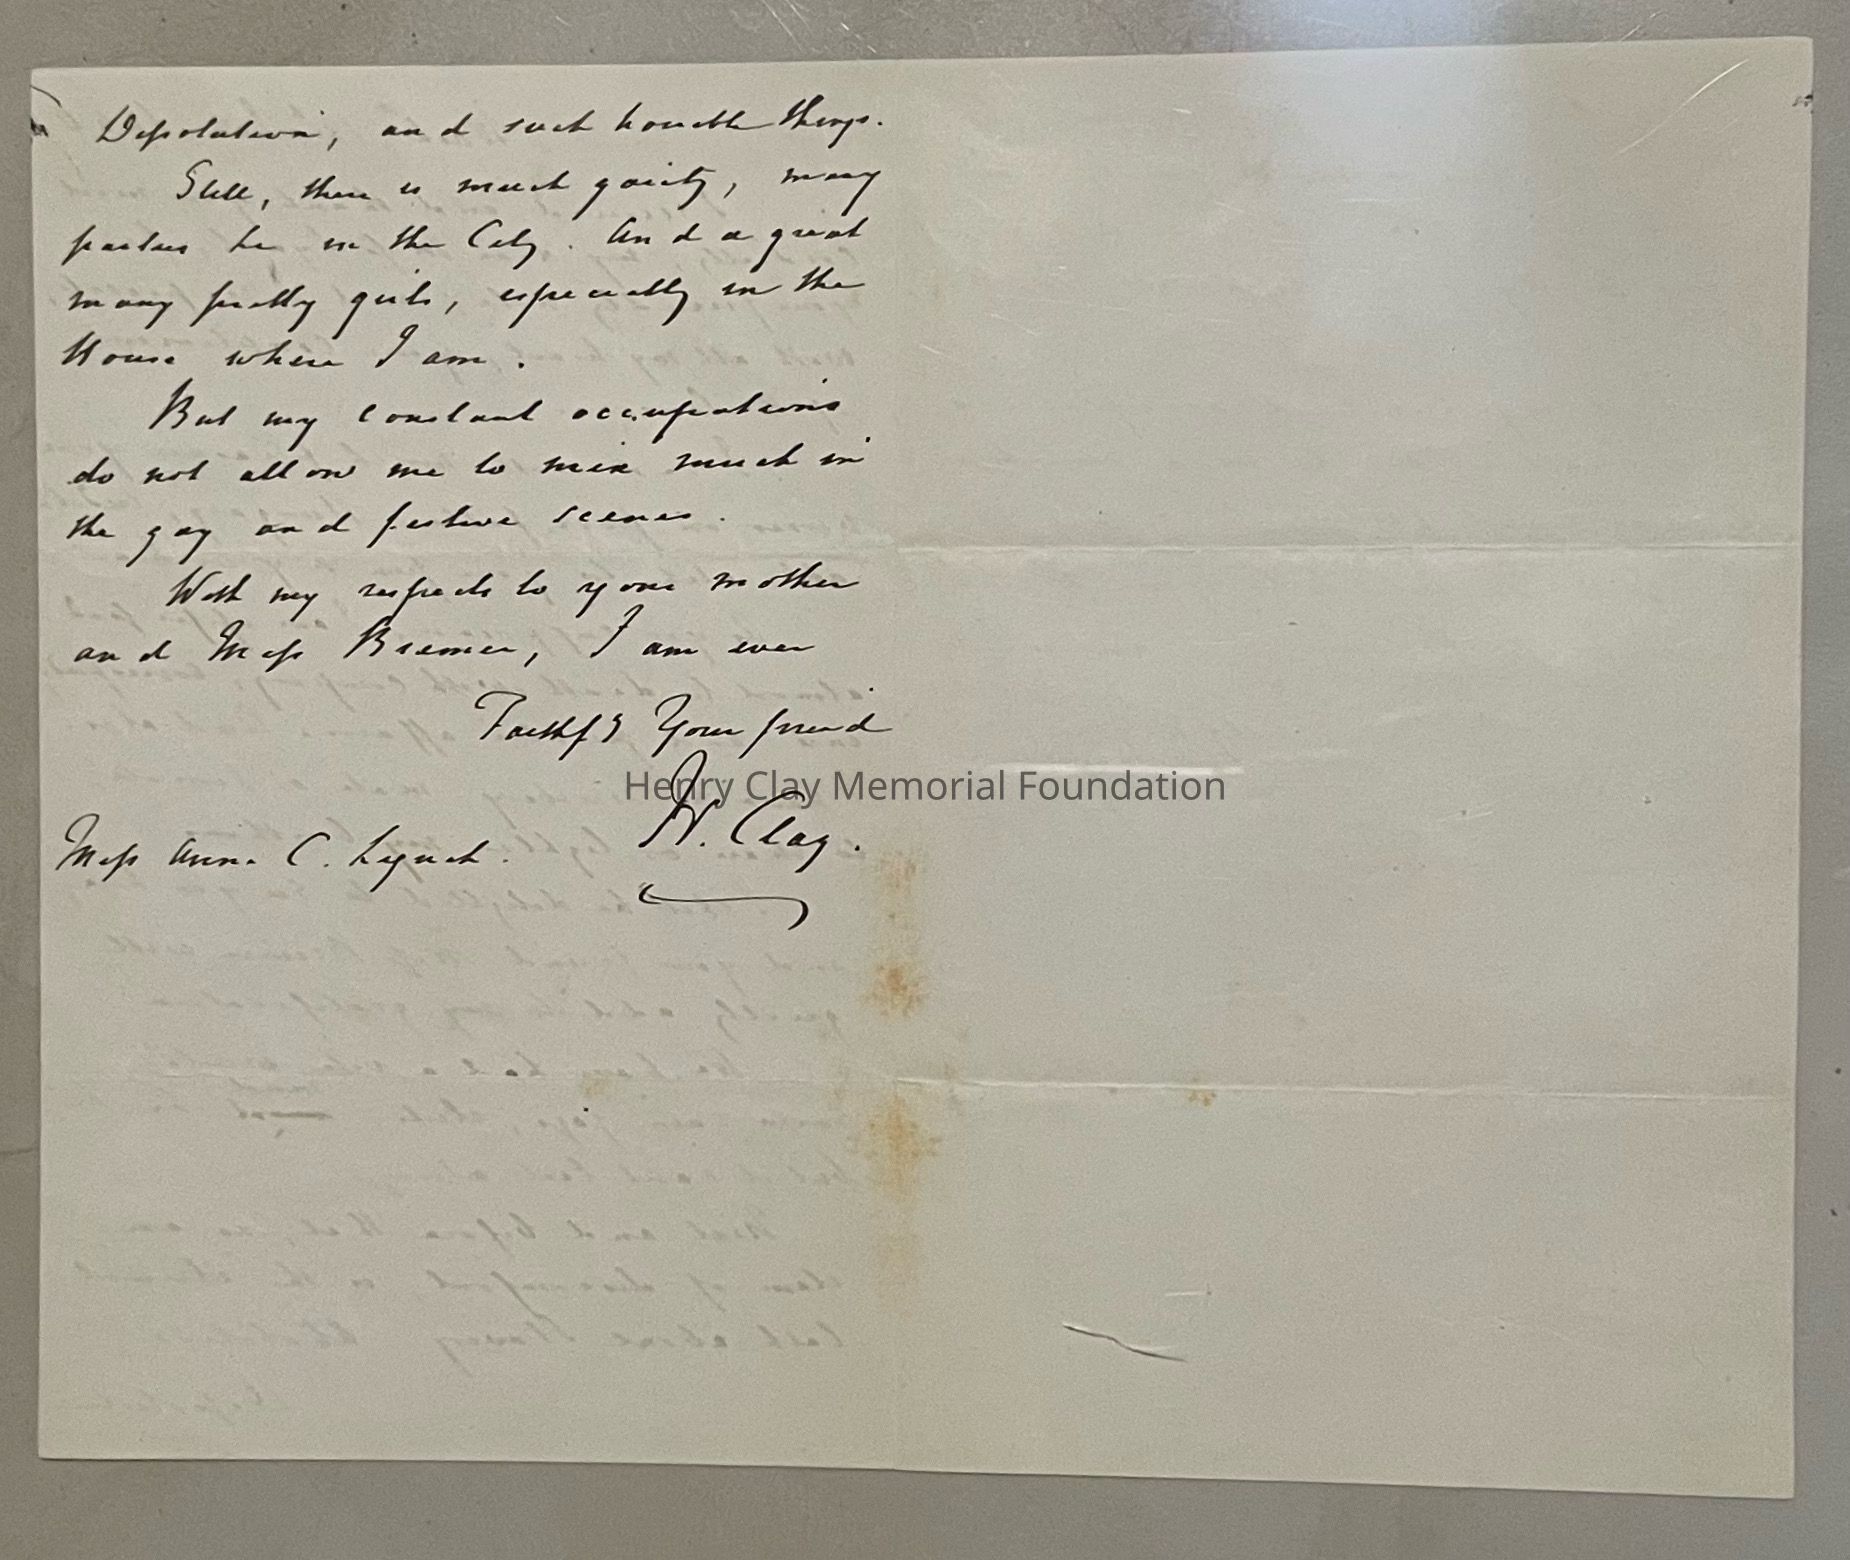 Dissolution, and such horrible things.
Still, there is much gaiety, many
parties &c in the City. And a great
many pretty girls, especially in the
House where I am.
But my constant occupations
do not allow me to mix much in
the gay and festive scenes.
With my respects to your mother
and Miss Bremer, I am ever
Faithfy Your friend
Henry Clay Memorial Foundation
H. Clay.
Miss Anne C. Lynch.